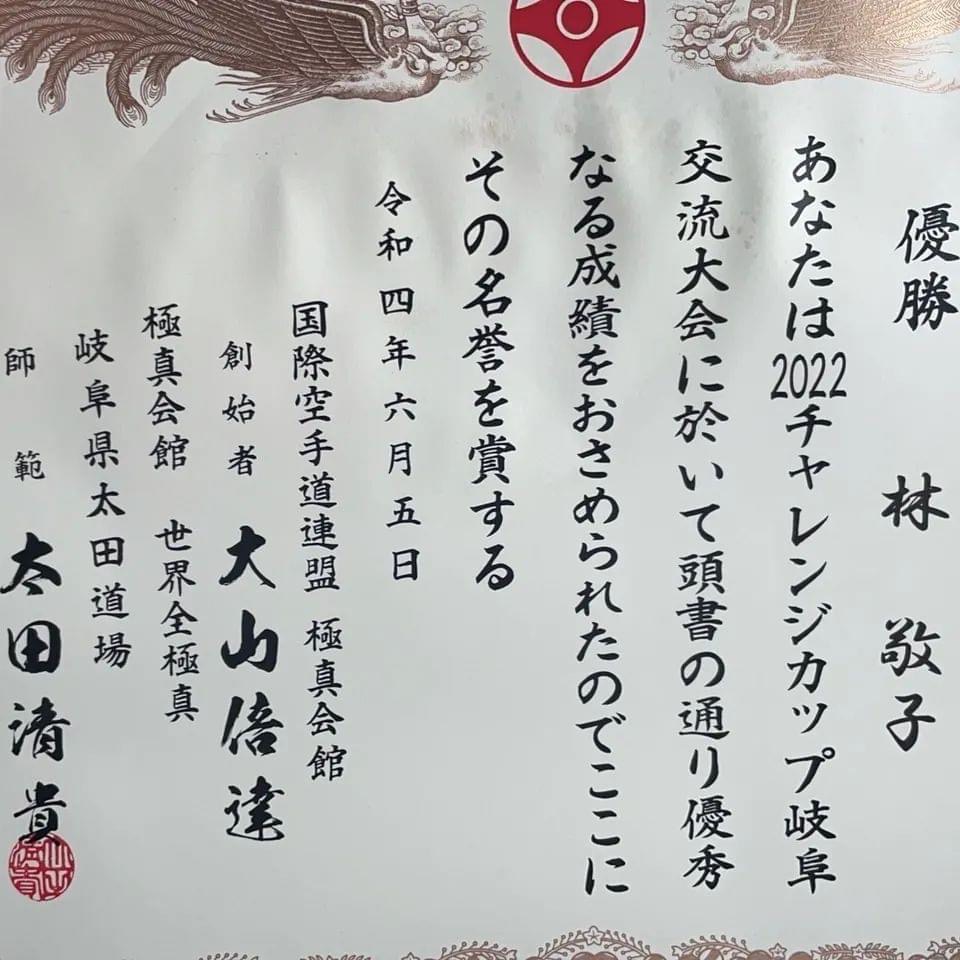 優勝 林 敬子
あなたは2022チャレンジカップ岐阜
交流大会に於いて頭書の通り優秀
なる成績をおさめられたのでここに
その名誉を賞する
令和四年六月五日
国際空手道連盟 極真会館
創始者 大山倍達
極真会館 世界全極真
岐阜県太田道場
師範 太田清貴